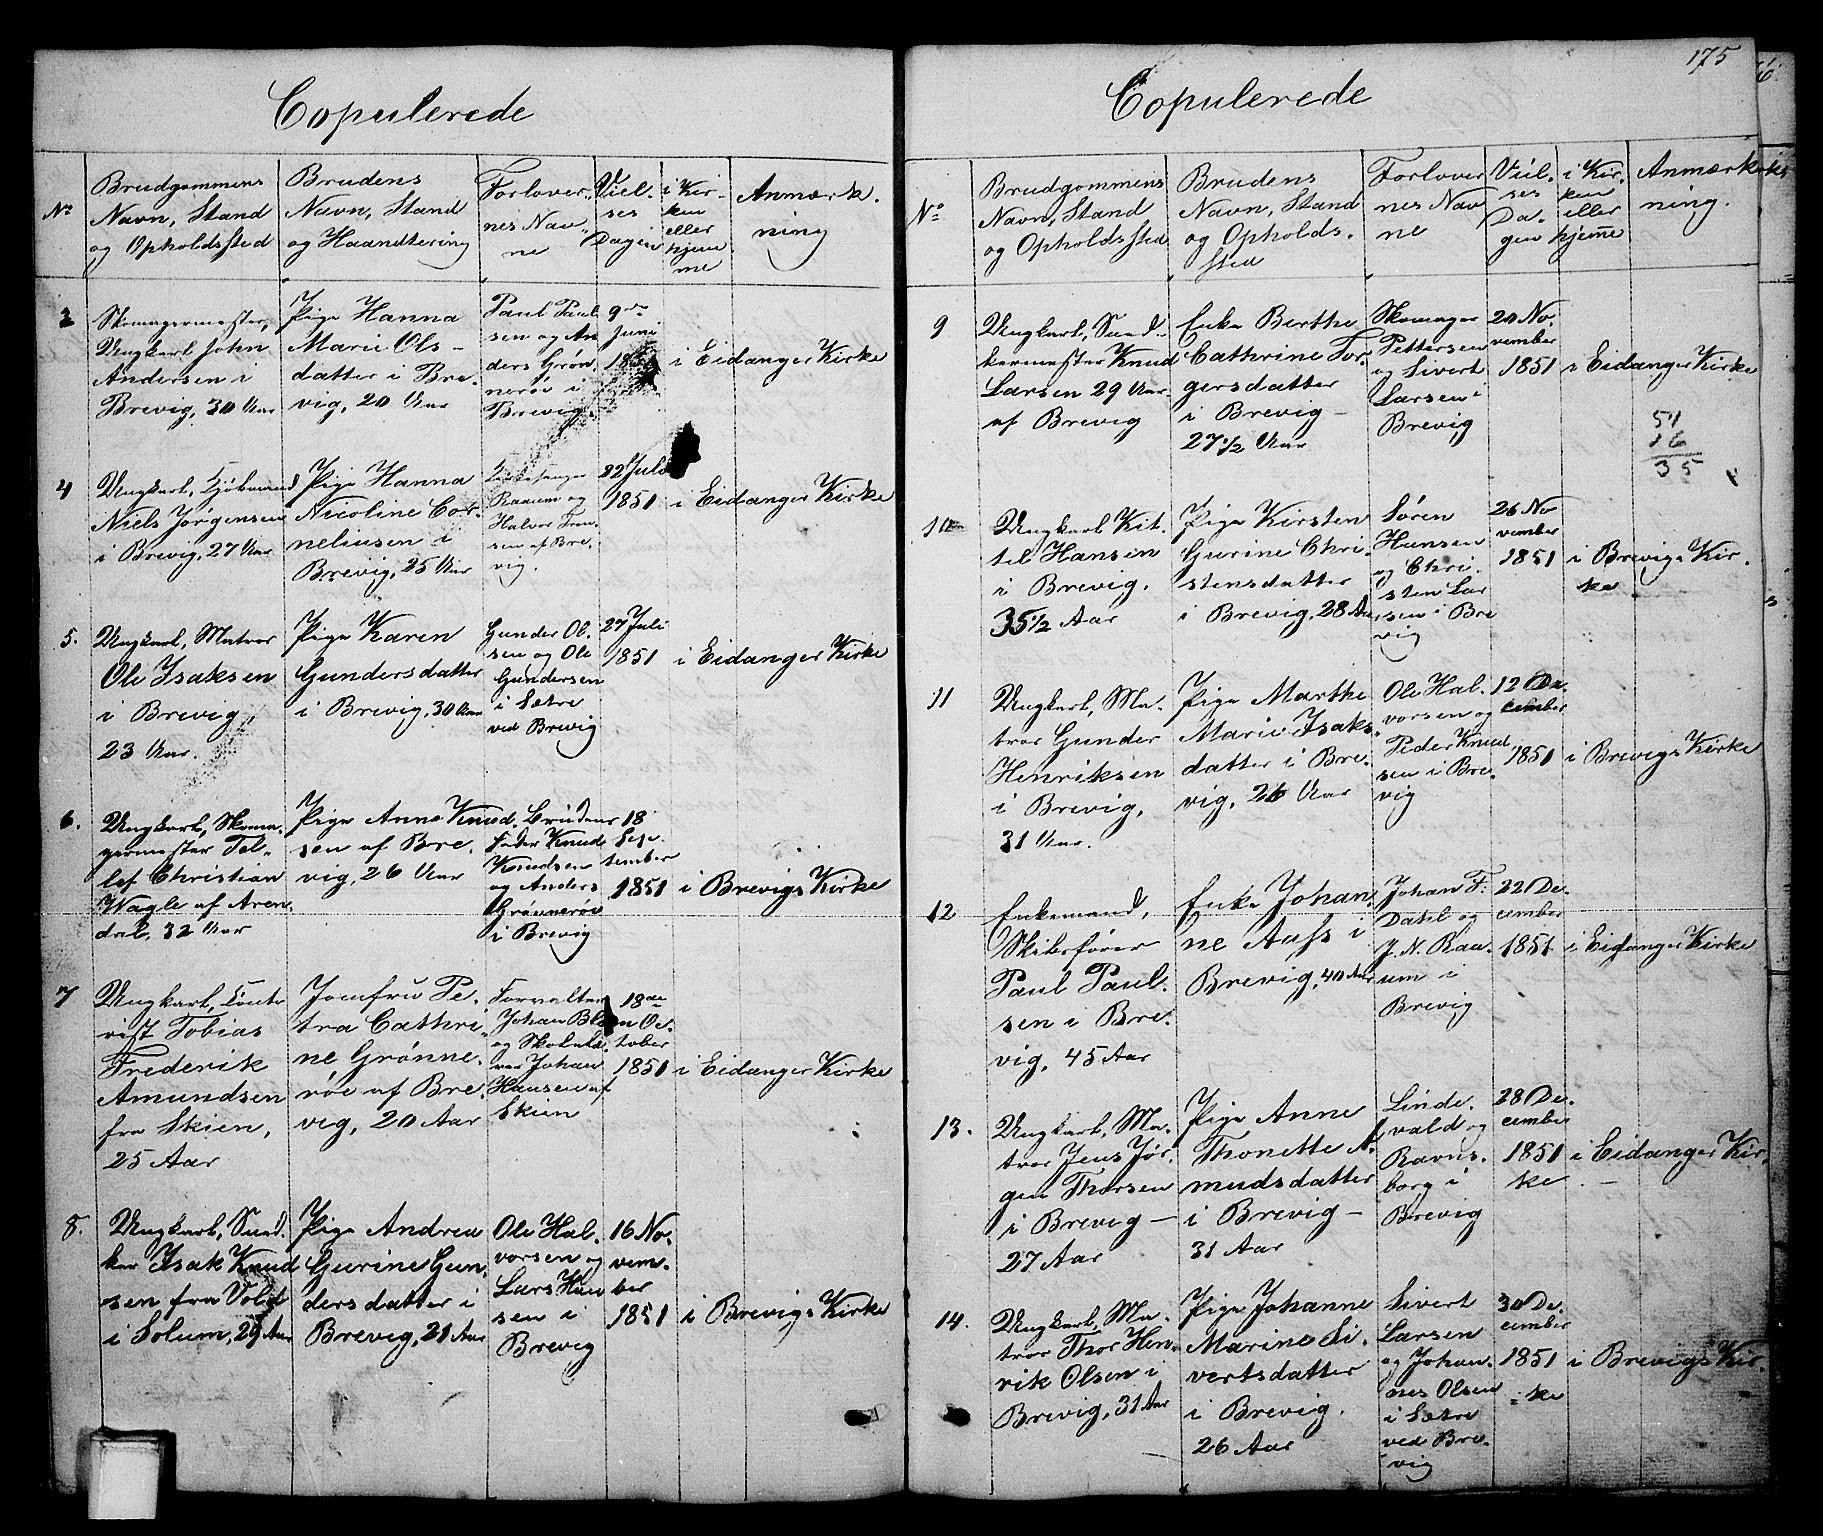 Copulerede
No
Brudgommens
Navn, Stand
og Opholdssted
Brudens
Navn, Stand
og Haandtering
Forlover-
nes Nav-
ne
Viel-
ses
Dagen
i Kir-
ken
eller
hjem-
me
Anmærk-
ning
3
Skomagermester,
Ungkarl John
Andersen i
Brevig, 30 Aar
Pige Hanna
Marie Ols-
datter i Bre-
vig, 20 Aar
Paul Paul-
sen og An
ders Grøn-
nerøe i
Brevig.
9de
Juni
1851
i Eidanger Kirke
4
Ungkarl,
Niels Jørgensen
i Brevig, 27 Aar
Pige Hanna
Nicoline Cor-
neliusen i
Brevig, 25 Aar
Raaum og
Halvor
sen af Bre-
vig.
22 Juli
1851
i Eidanger Kirke
5.
Ungkarl, Matros
Ole Isaksen
i Brevig,
23 Aar.
Pige Karen
Gundersdatter
i Brevig, 30 Aar
Gunder Ol-
sen og Ole
Gundersen
i Sætre
ved Brevig
27 Juli
1851
i Eidanger Kirke
6.
Ungkarl, Skoma-
germester Tel-
lef Christian
Wagle af Aren-
dal, 32 Aar
Pige Anne Knud-
sen af Bre-
vig, 26 Aar
Brudens
Fader Knud
Knudsen
og Anders
Grønnerøe
i Brevig
18
Sep-
tember
1851
i Brevigs Kirke
7
Ungkarl, Conto-
rist Tobias
Frederik
Amundsen
fra Skien,
25 Aar
Jomfru Pe-
tra Cathri-
ne, Grønne-
røe af Bre-
vig, 20 Aar
Forvalter
Johan
og Skolelæ-
rer Johan
Hansen af
Skien
18de
Oc-
tober
1851
i Eidanger Kirke
8.
Ungkarl, Sned-
ker Isak Knud
sen fra Vold
i Solum, 29 Aar
Pige Andrea
Gurine Gun-
dersdatter i
Brevig, 21 Aar
Ole Hal-
vorsen og
Lars Han
sen i
Brevig
16 No-
vem-
ber
1851
i Brevigs Kirke
175
Copulerede
No
Brudgommens
Navn, Stand
og Opholdssted
Brudens
Navn, Stand
og Opholds-
sted
Forlover
nes Nav
ne
Viel-
ses
Da-
gen
i Kir-
ken
eller
hjemme
Anmærk-
ning.
9
Ungkarl, Sned-
kermester Knud
Larsen 29 Aar
af Brevig
Enke Berthe
Cathrine Tor-
gersdatter
i Brevig -
27 1/2 Aar
Skomager
Pettersen
og Sivert
Larsen i
Brevig
20 No-
vember
1851
i Eidanger Kirke
51
16
35
10
Ungkarl Kit-
til Hansen
i Brevig.
35 1/2 Aar
Pige Kirsten
Gurine Chri-
stensdatter
i Brevig, 28 Aar
Søren
Hansen
og Chri-
sten Lar
sen i Bre
vig
26 No
vember
1851
i Brevigs Kir-
ke
11
Ungkarl, Ma-
tros Gunder
Henriksen
i Brevig,
31 Aar.
Pige Marthe
Marie Isaks-
datter i Bre-
vig, 26 Aar
Ole Hal-
vorsen og
Peder Knud-
sen i Bre-
vig
12 De-
cember
1851
i Brevigs Kirke
12
Enkemand,
Skibsfører
Paul Paul-
sen i Bre-
vig, 45 Aar
Enke Johan-
ne Aass i
Brevig, 40 Aar
Johan F.
Dahl og
J. N. Raa-
um i
Brevig
22 De-
cember
1851
i Eidanger Kirke
13.
Ungkarl, Ma-
tros Jens Jør-
gen Thorsen
i Brevig -
27 Aar
Pige Anne
Thonette A-
mundsdatter
i Brevig -
31 Aar
Linde-
vald og
Ravns-
borg i
Brevig
28 De-
cember
1851
i Eidanger Kir-
ke
14.
Ungkarl, Ma-
tros Thor Hen-
rik Olsen i
Brevig, 31 Aar
Pige Johanne
Marine Si-
vertsdatter
i Brevig.
26 Aar
Sivert
Larsen
og Johan-
nes Olsen
i Sætre
ved Bre-
vig
30 De-
cember
1851
i Brevigs Kir-
ke